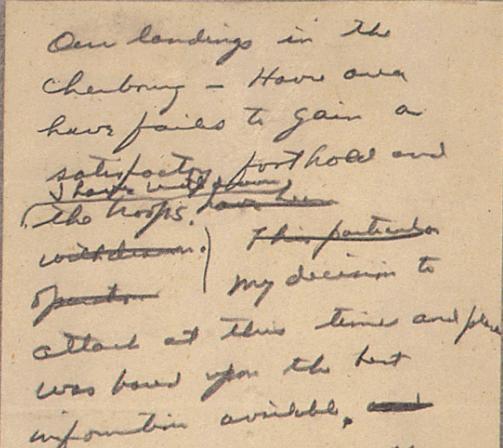 Our landings in the
Cherbourg - Havre area
have failed to gain a
satisfactory foothold and
I have withdrawn
the troops. have been
withdrawn. This particular
operation My decision to
attack at this time and place
was based upon the best
information available, and